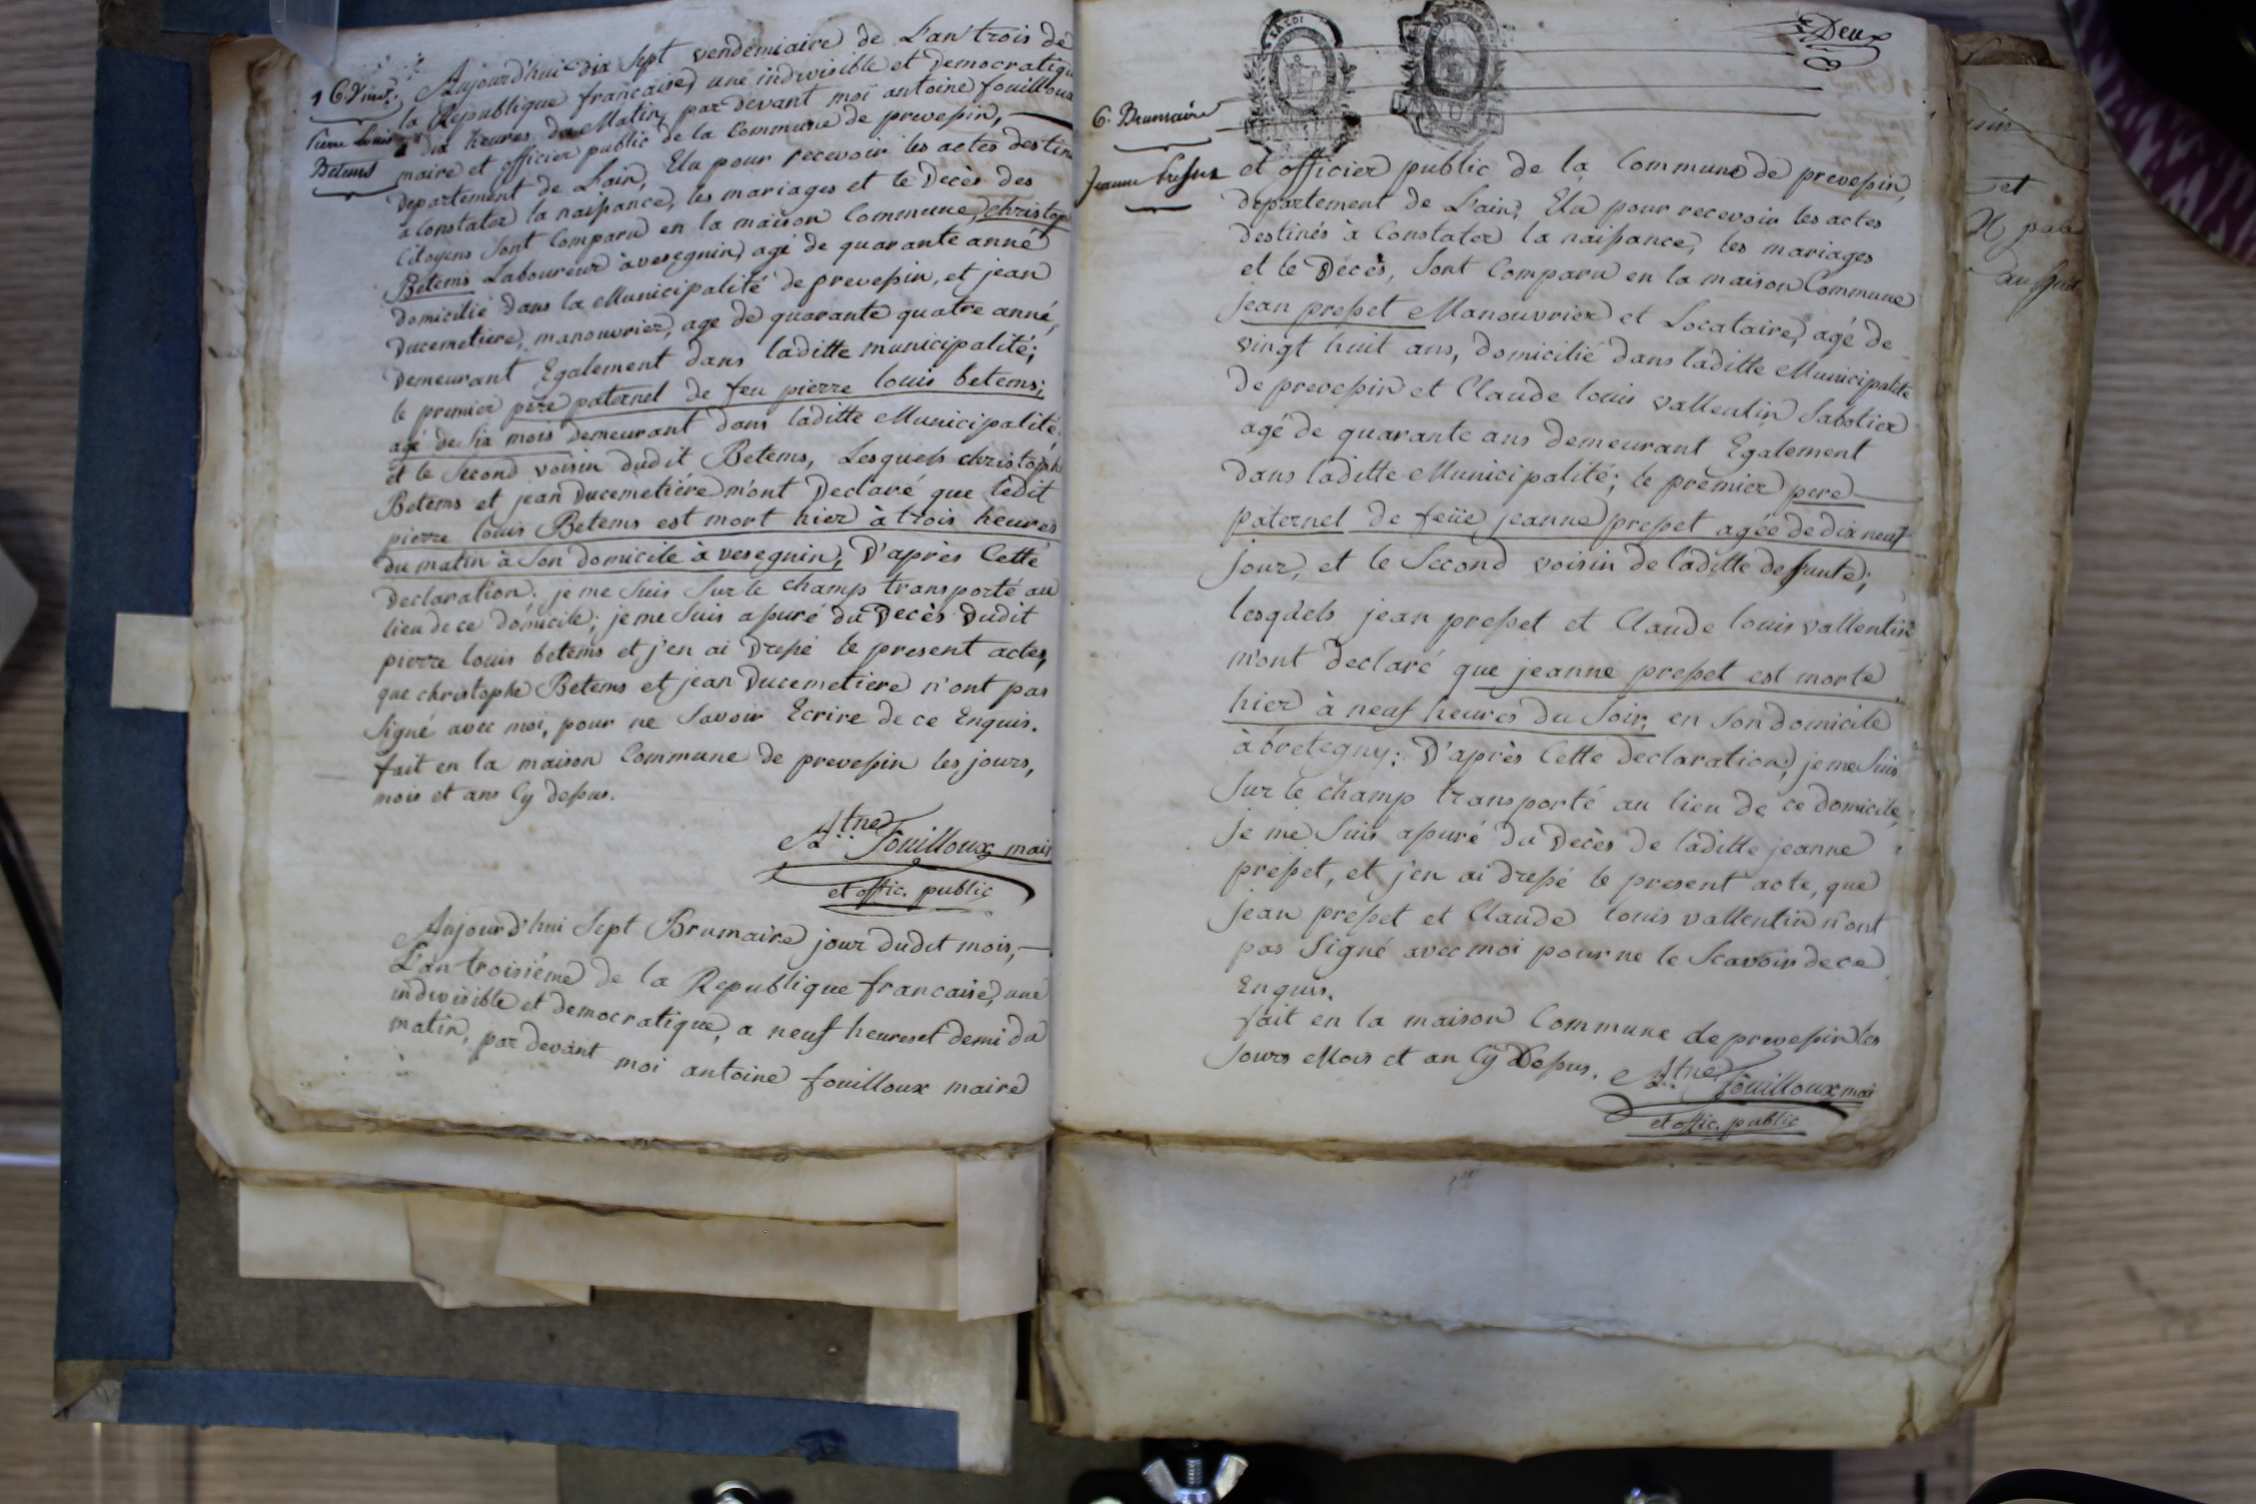 16 Vind.re
Pierre Louis
Betems
Aujourd'hui dix sept vendemiaire de L'an trois de
la Republique francaise, une indivisible et Democratique
a dix heures du Matin, par devant moi antoine fouilloux
maire et officier public de la Commune de prevessin,
departement de L'ain, Elu pour recevoir les actes destin
a Constater la naissance, les mariages et le Decès des
Citoyens sont Comparu en la maison Commune, christop
Betems Laboureur à vesegnin, agé de quarante anné
domicilié dans la Municipalité de prevessin, et jean
Ducemetiere, manouvrier, age de quarante quatre anné,
Demeurant Egalement dans laditte municipalité;
le premier pere paternel de feu pierre louis betems;
agé de six mois demeurant dans laditte Municipalité.
et le Second voisin dudit Betems, Lesquels christophe
Betems et jean Ducemetiére m'ont Declaré que ledit
pierre louis Betems est mort hier à trois heures
du matin à son domicile à vesegnin, D'après Cette
Declaration. je me suis sur le champ transporté au
lieu de ce domicile; je me suis assuré du Decès dudit
pierre louis betems et j'en ai Dressé le present actes,
que christophe Betems et jean Ducemetiere n'ont pas
signé avec moi, pour ne savoir Ecrire de ce Enquis.
fait en la maison Commune de prevessin les jours,
mois et ans Cy dessus.
Atne Fouilloux mair
et offic. public
Aujourd'hui Sept Brumaire jour dudit mois,
L'an troisiéme de la Republique francaise, une
indivisible et democratique, a neuf heures et demi du
matin, par devant moi antoine fouilloux maire
Deux
6. Brumaire
Jeanne Presset
et officier public de la Commune de prevessin,
departement de L'ain, Elu pour recevoir les actes
destinés à Constater la naissance, les mariages
et le Décès, sont Comparu en la maison Commune
jean presset Manouvrier et Locataire, agé de
vingt huit ans, domicilié dans laditte Municipalité
de prevessin et Claude louis vallentin Sabotier
agé de quarante ans demeurant Egalement
dans laditte Municipalité; le premier pere
paternel de feüe jeanne presset agée de dix neuf
jour, et le Second voisin de laditte defunte;
lesquels jean presset et Claude louis vallentin
m'ont declaré que jeanne presset est morte
hier à neuf heures du soir, en son domicile
à bretegny; D'après Cette declaration, je me suis
sur le champ transporté au lieu de ce domicile,
je me suis assuré du Decès de laditte jeanne
presset, et j'en ai dressé le present acte, que
jean presset et Claude louis vallentin n'ont
pas signé avec moi pour ne le Scavoir de ce
Enquis.
fait en la maison Commune de prevessin les
jours Mois et an Cy Dessus.
Atne Fouilloux mai
et offic. public